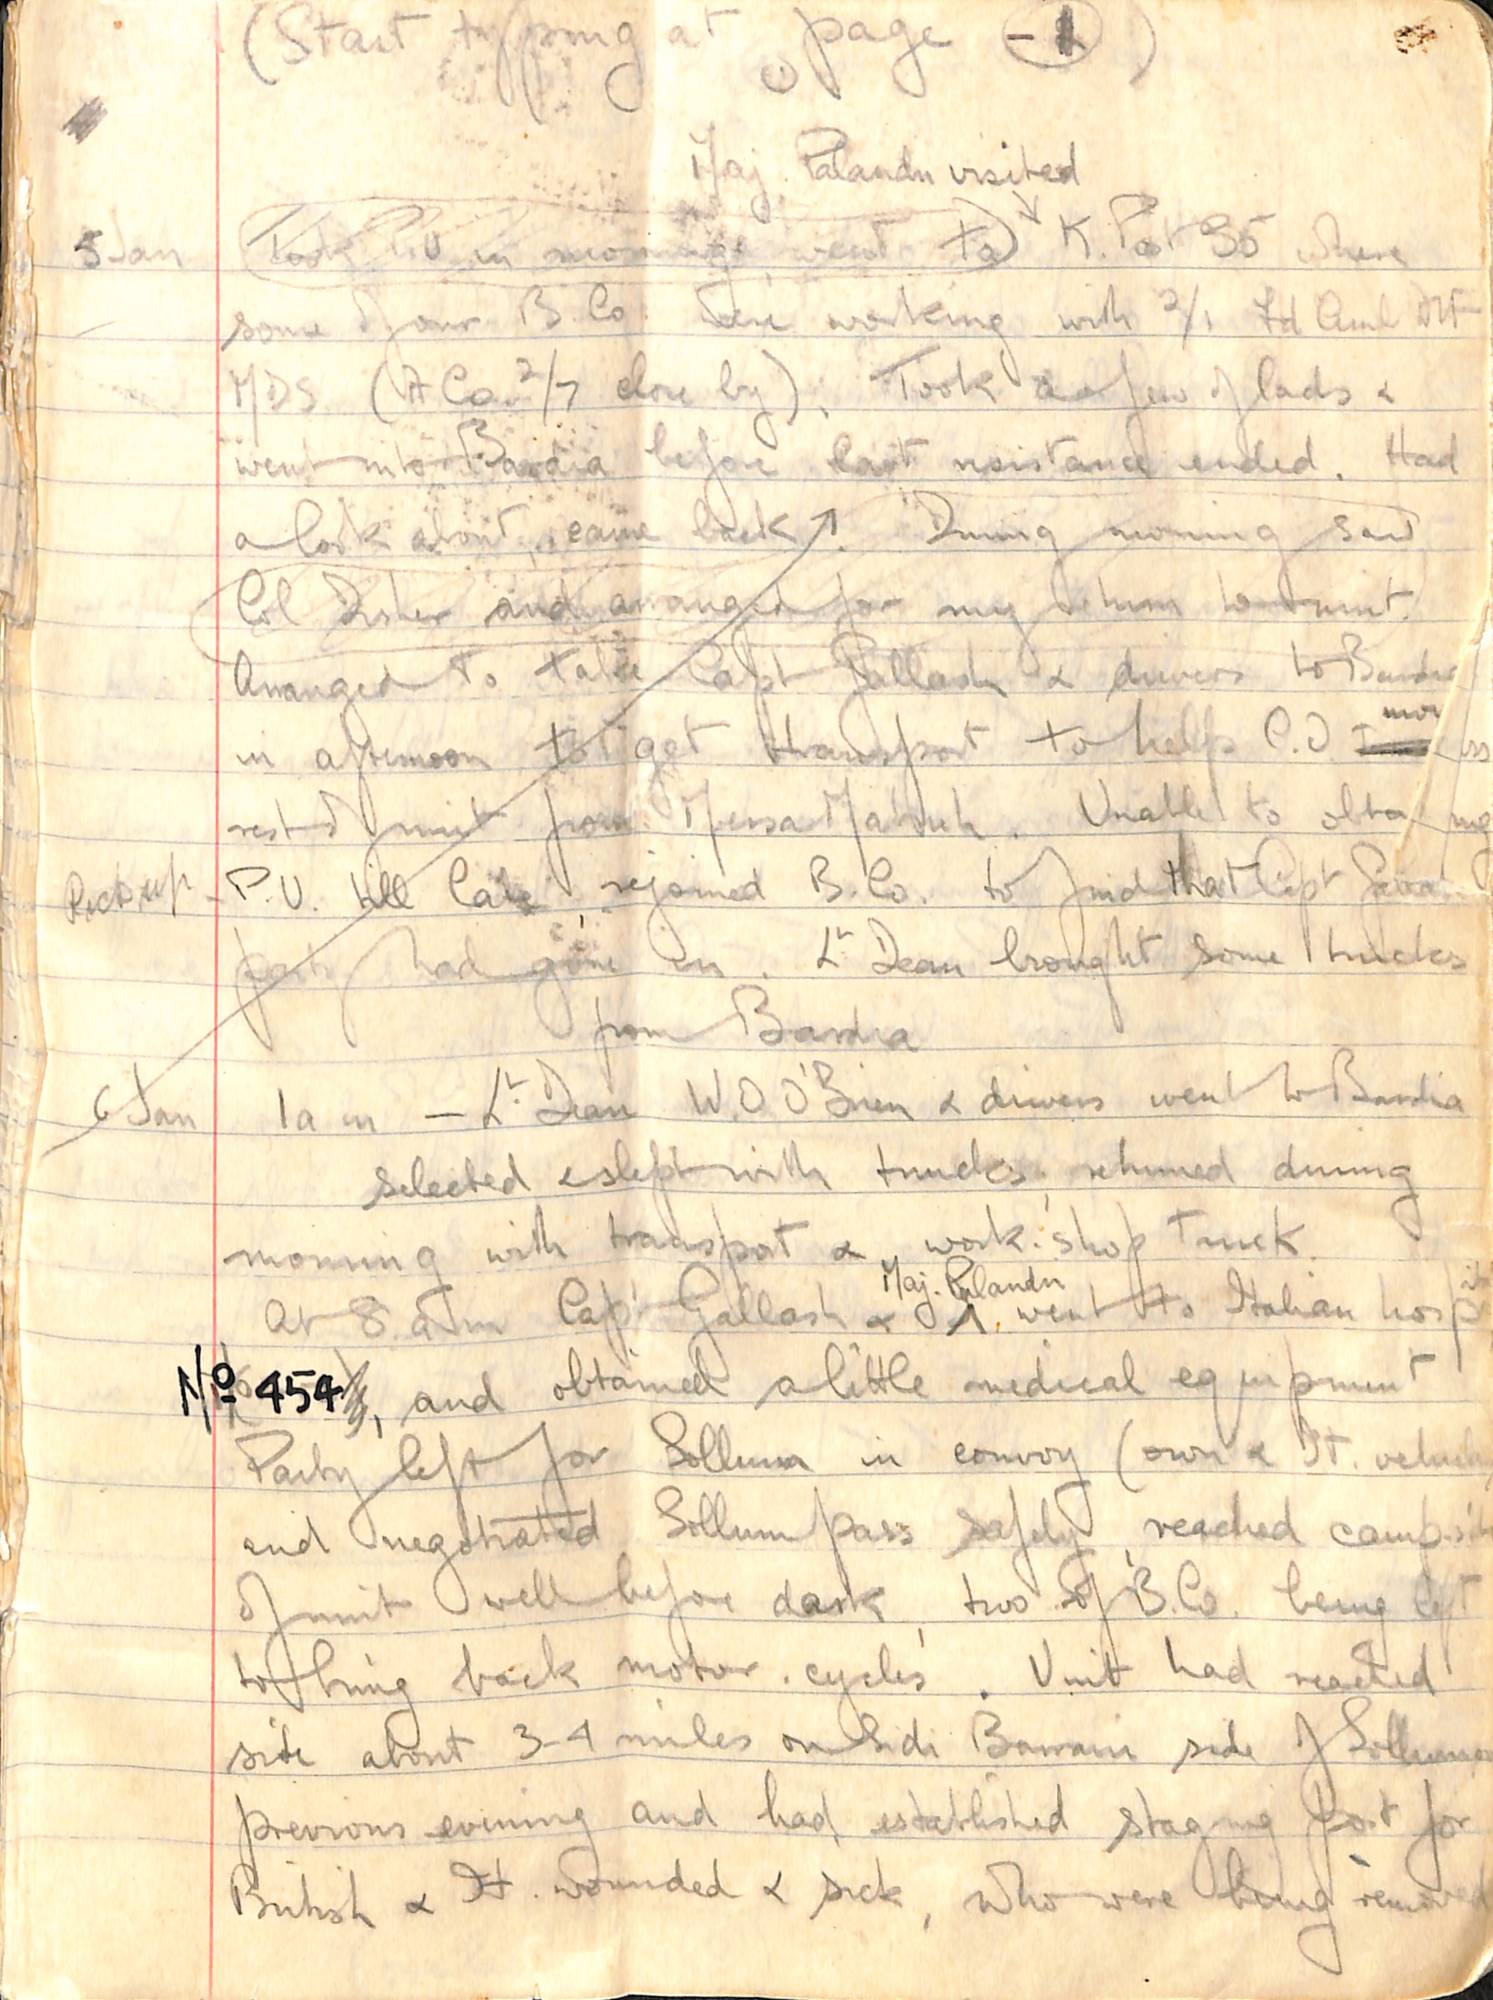 (Start typing at page -1)
Maj. Palandri visited
5 Jan Took P.U. in morning, went to K. Post 35 where
some of our B. Co. were working with 2/1 Fd Amb
MDS (A Co. 2/7 close by). Took a few of lads &
went into Bardia before last resistance ended. Had
a look about, came back. During morning saw
Col Disher and arranged for my return to unit.
Arranged to take Capt Gallash & drivers to Bardia
in afternoon to get transport to help C.O. mov
rest of unit from Mersa Matruh. Unable to
Pick up P.U. till late, rejoined B. Co. to find that Capt
party had gone in. Lt Dean brought some trucks
from Bardia
6 Jan 1 am - Lt Dean W.O O'Brien & drivers went to Bardia
selected & slept with trucks, returned during
morning with transport & work.shop Truck.
Maj. Palandri
At 8. a.m Capt Gallash & went to Italian hospit
No 454, and obtained a little medical equipment
Party left for Sollum in convoy (own & It. vehicles
and negotiated Sollum pass safely, reached camp-site
of unit well before dark, two of B.Co. being left
to bring back motor.cycles. Unit had reached
site about 3-4 miles on Sidi Barrani side of Sollum
previous evening and had established staging post for
British & It. wounded & sick, who were being removed